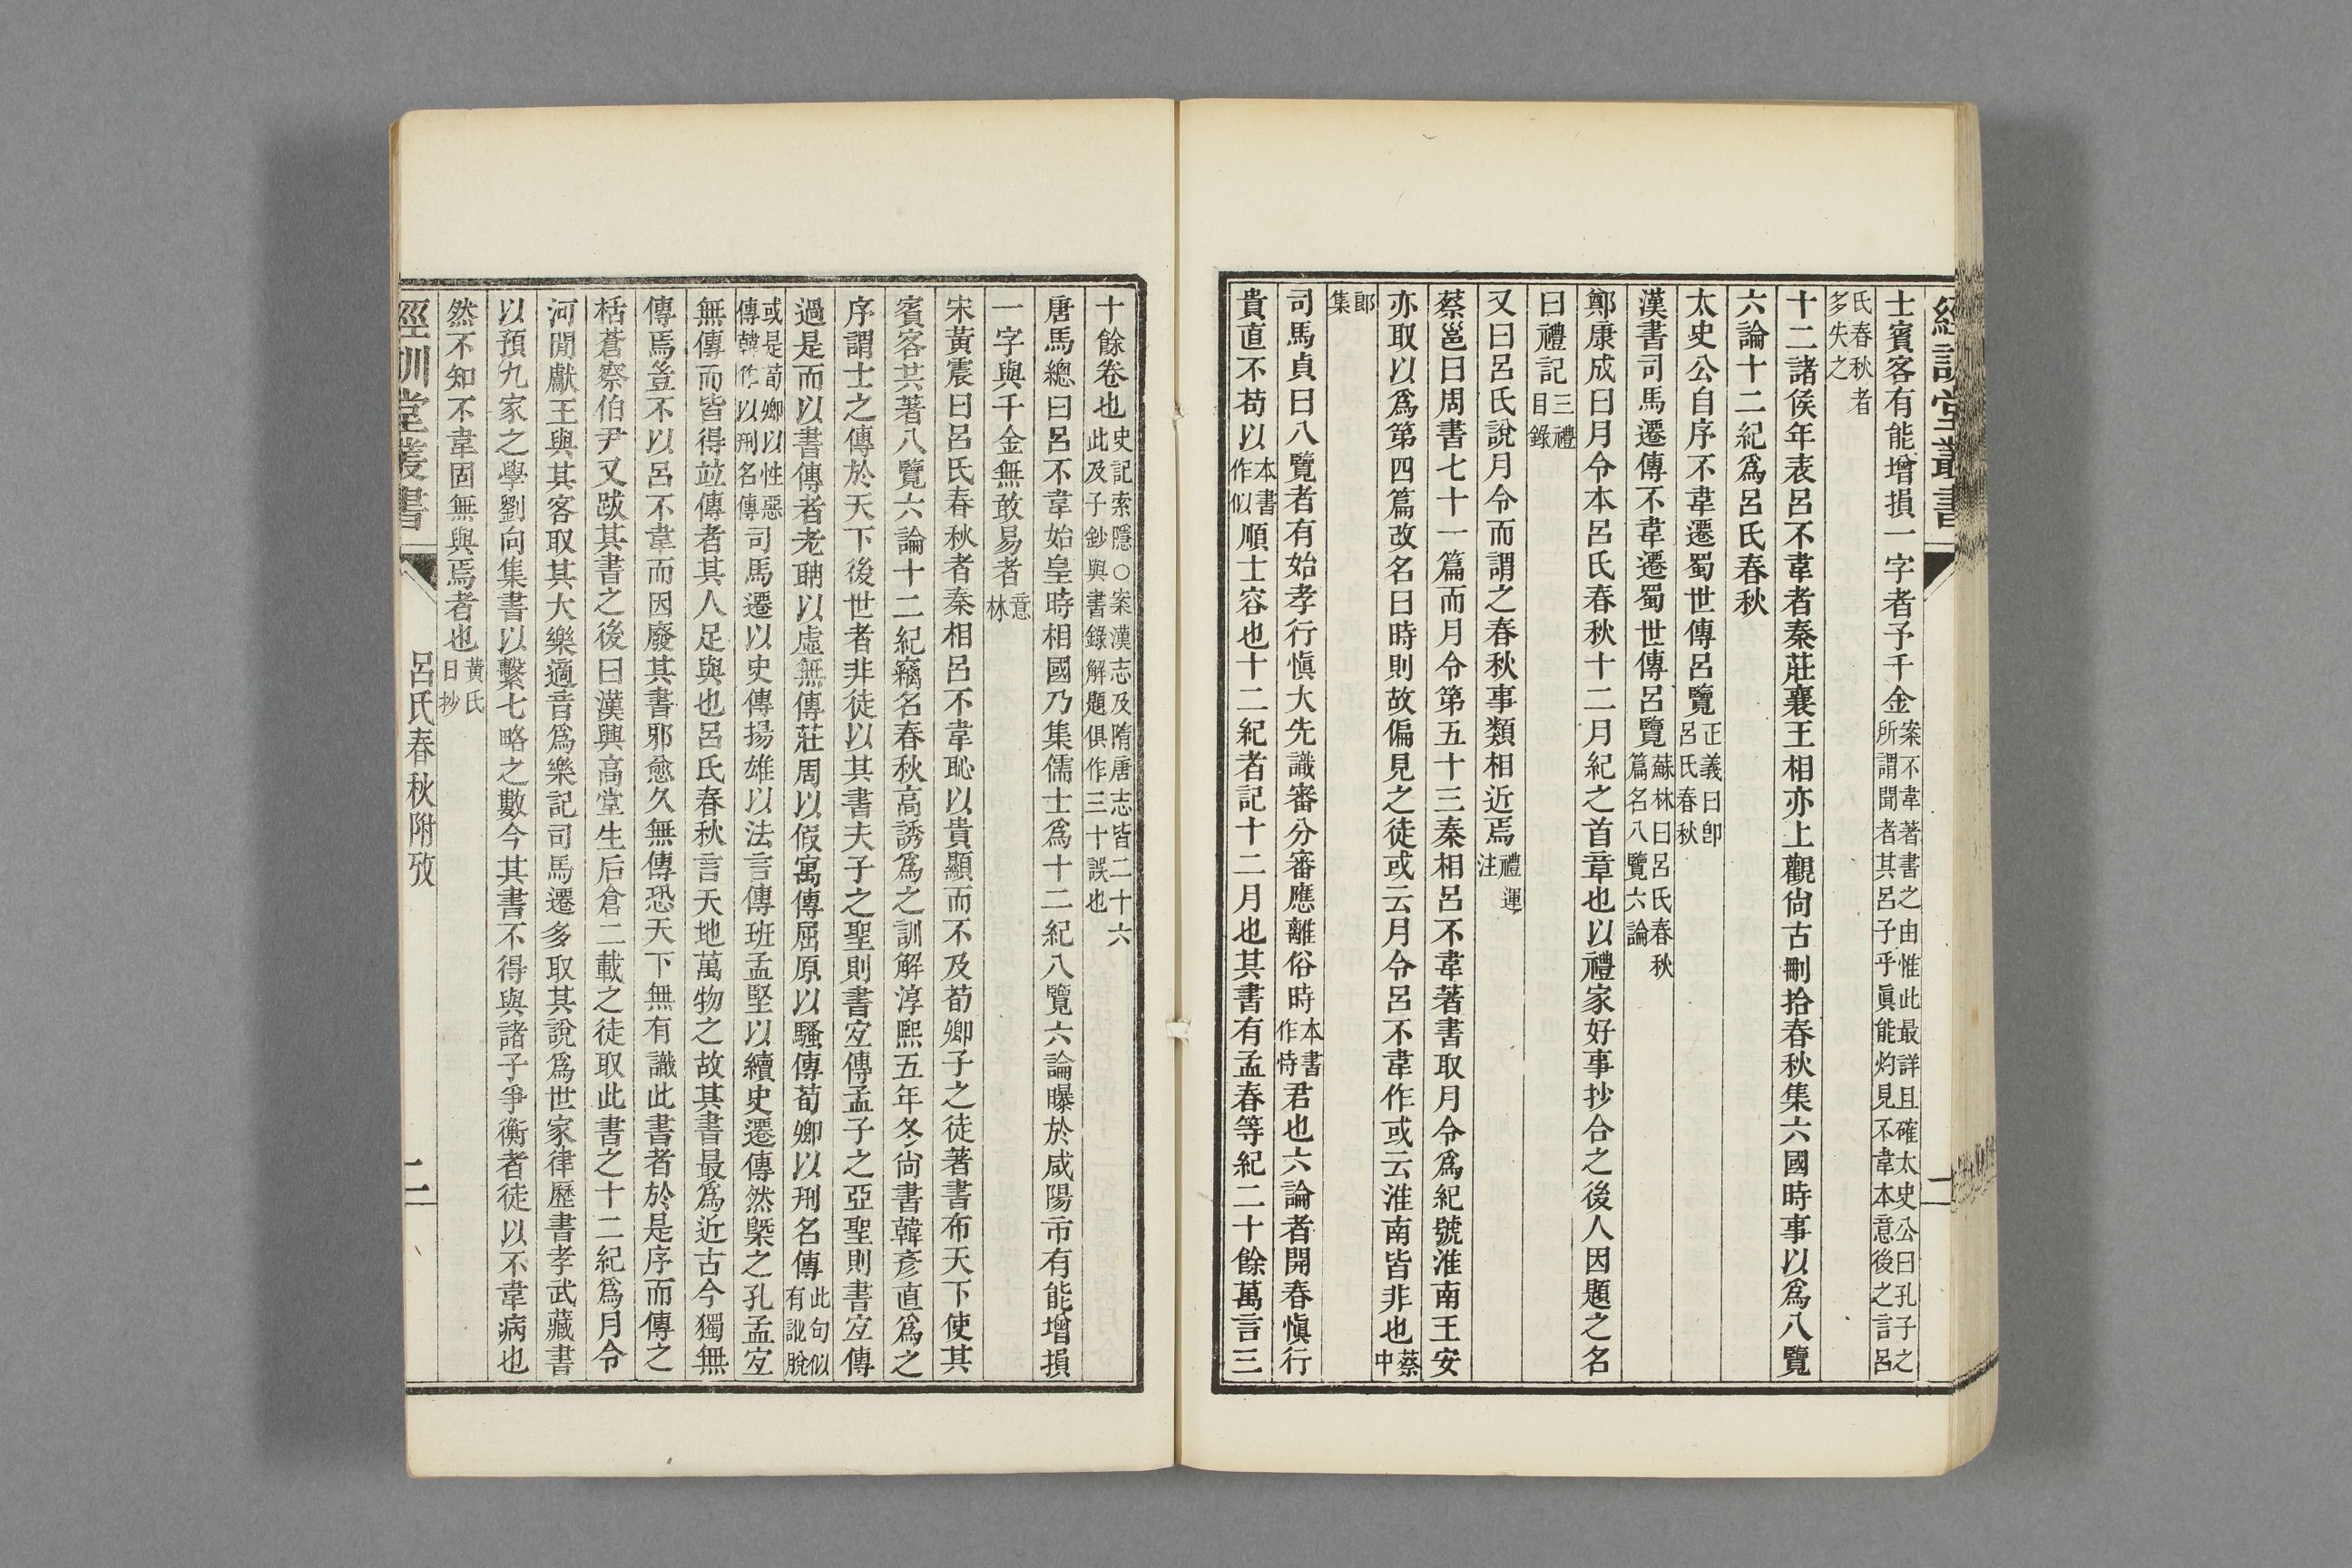 經訓堂叢書
一
士賓客有能增損一字者予千金案不韋著書之由惟此最詳且確太史公曰孔子之所謂聞者其呂子乎眞能灼見不韋本意後之言呂
氏春秋者多失之
十二諸侯年表呂不韋者秦莊襄王相亦上觀尙古刪拾春秋集六國時事以爲八覽
六論十二紀爲呂氏春秋
太史公自序不韋遷蜀世傳呂覽正義曰卽呂氏春秋
漢書司馬遷傳不韋遷蜀世傳呂覽蘇林曰呂氏春秋篇名八覽六論
鄭康成曰月令本呂氏春秋十二月紀之首章也以禮家好事抄合之後人因題之名
曰禮記三禮目錄
又曰呂氏說月令而謂之春秋事類相近焉禮運注
蔡邕曰周書七十一篇而月令第五十三秦相呂不韋著書取月令爲紀號淮南王安
亦取以爲第四篇改名曰時則故偏見之徒或云月令呂不韋作或云淮南皆非也蔡中
郎集
司馬貞曰八覽者有始孝行愼大先識審分審應離俗時本書作恃君也六論者開春愼行
貴直不苟以本書作似順士容也十二紀者記十二月也其書有孟春等紀二十餘萬言三
十餘卷也史記索隱○案漢志及隋唐志皆二十六此及子鈔與書錄解題俱作三十誤也
唐馬總曰呂不韋始皇時相國乃集儒士爲十二紀八覽六論曝於咸陽市有能增損
一字與千金無敢易者意林
宋黃震曰呂氏春秋者秦相呂不韋恥以貴顯而不及荀卿子之徒著書布天下使其
賓客共著八覽六論十二紀竊名春秋高誘爲之訓解淳熙五年冬尙書韓彥直爲之
序謂士之傳於天下後世者非徒以其書夫子之聖則書宜傳孟子之亞聖則書宜傳
過是而以書傳者老聃以虛無傳莊周以假寓傳屈原以騷傳荀卿以刑名傳此句似有訛脫
或是荀卿以性惡傳韓作以刑名傳司馬遷以史傳揚雄以法言傳班孟堅以續史遷傳然槩之孔孟宜
無傳而皆得竝傳者其人足與也呂氏春秋言天地萬物之故其書最爲近古今獨無
傳焉豈不以呂不韋而因廢其書邪愈久無傳恐天下無有識此書者於是序而傳之
栝蒼察伯尹又跋其書之後曰漢興高堂生后倉二載之徒取此書之十二紀爲月令
河閒獻王與其客取其大樂適音爲樂記司馬遷多取其說爲世家律歷書孝武藏書
以預九家之學劉向集書以繫七略之數今其書不得與諸子爭衡者徒以不韋病也
然不知不韋固無與焉者也黃氏日抄
經訓堂叢書
呂氏春秋附攷
二